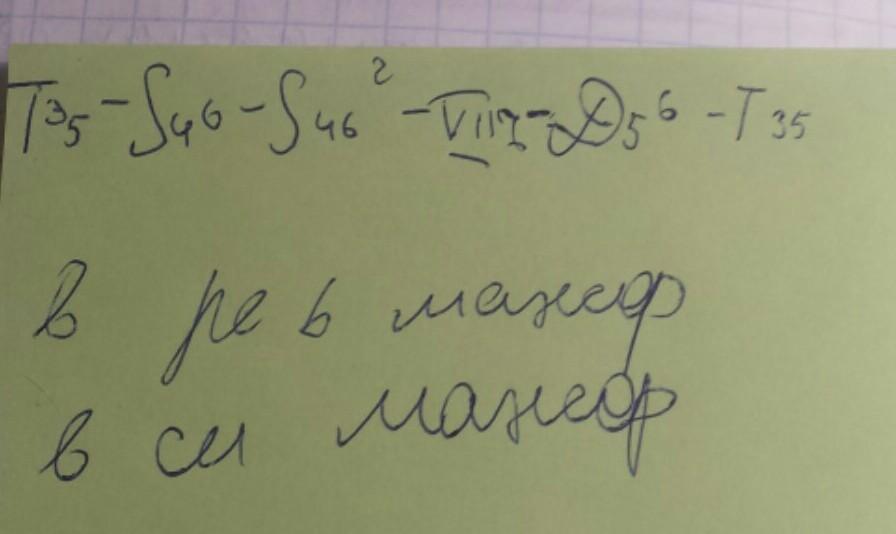 T35 - S46 - S46 г - VII7 - D56 - T35
в ре ь мажор
в си мажор